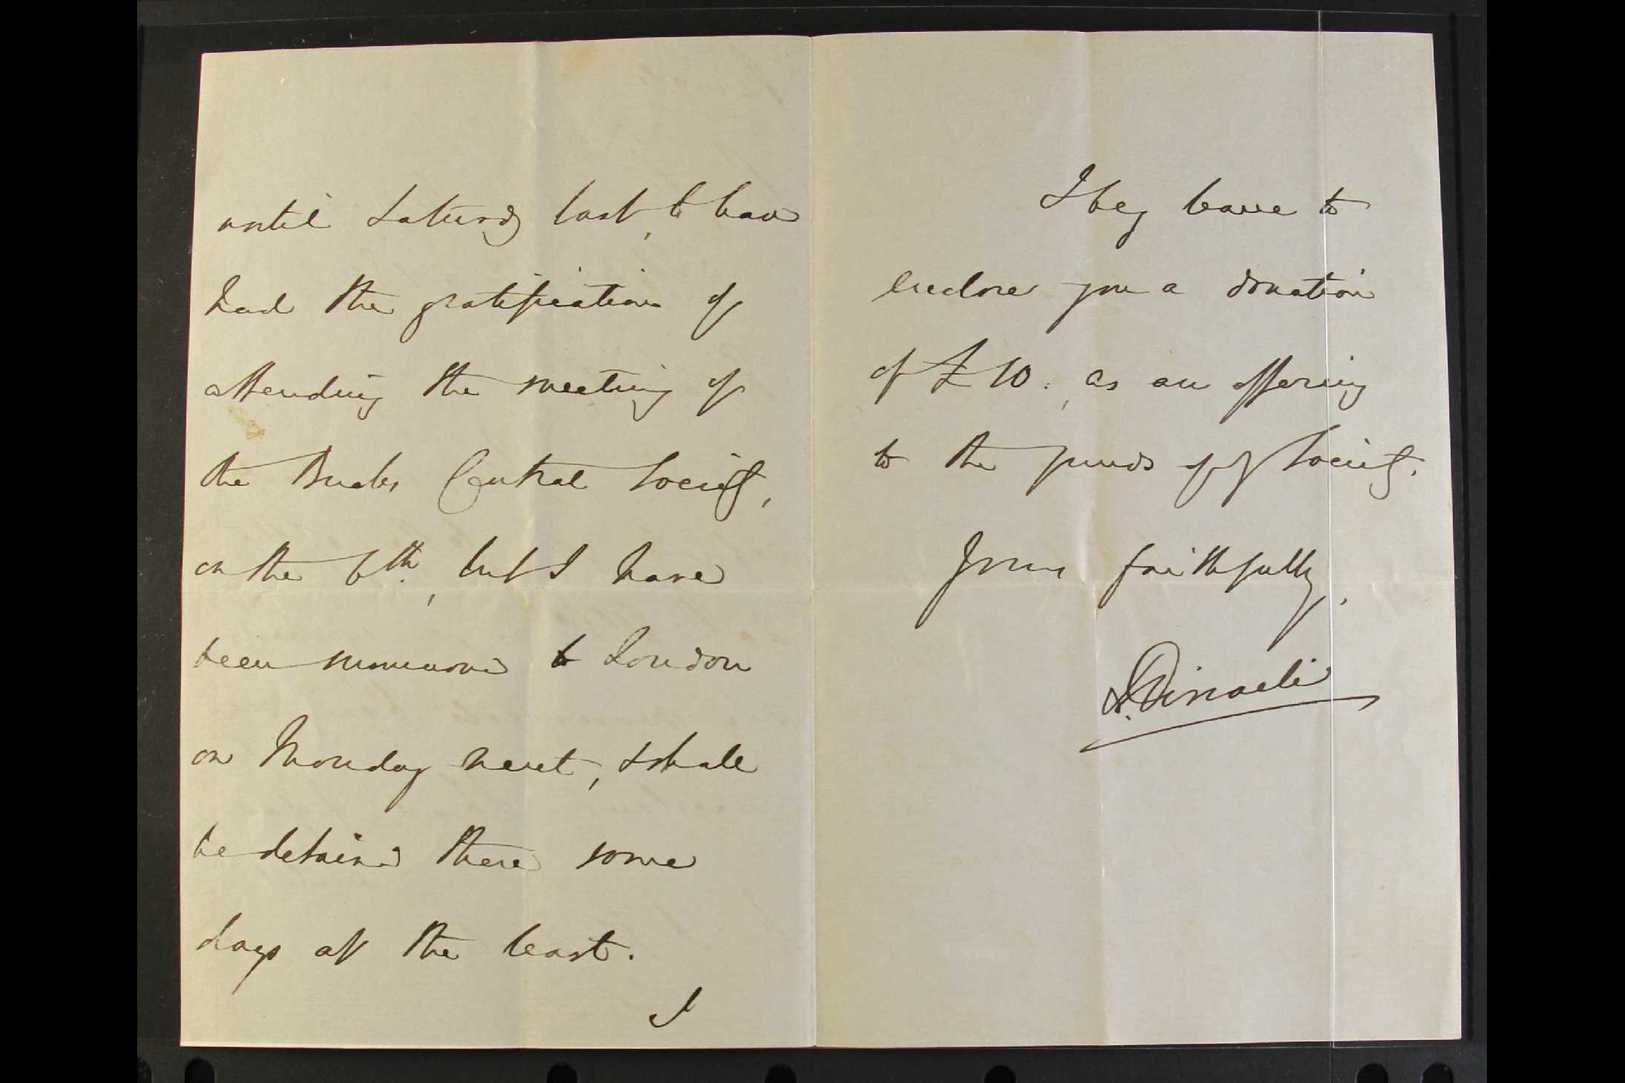 until Saturdy last, to have
had the gratification of
attending the meeting of
the Bucks Central Society,
on the 6th, but I have
been summoned to London
on Monday next, & shall
be detained there some
days at the least.
I
I beg leave to
enclose you a donation
of £10:, as an offering
to the funds of yr Society.
Yours faithfully,
D. Disraeli